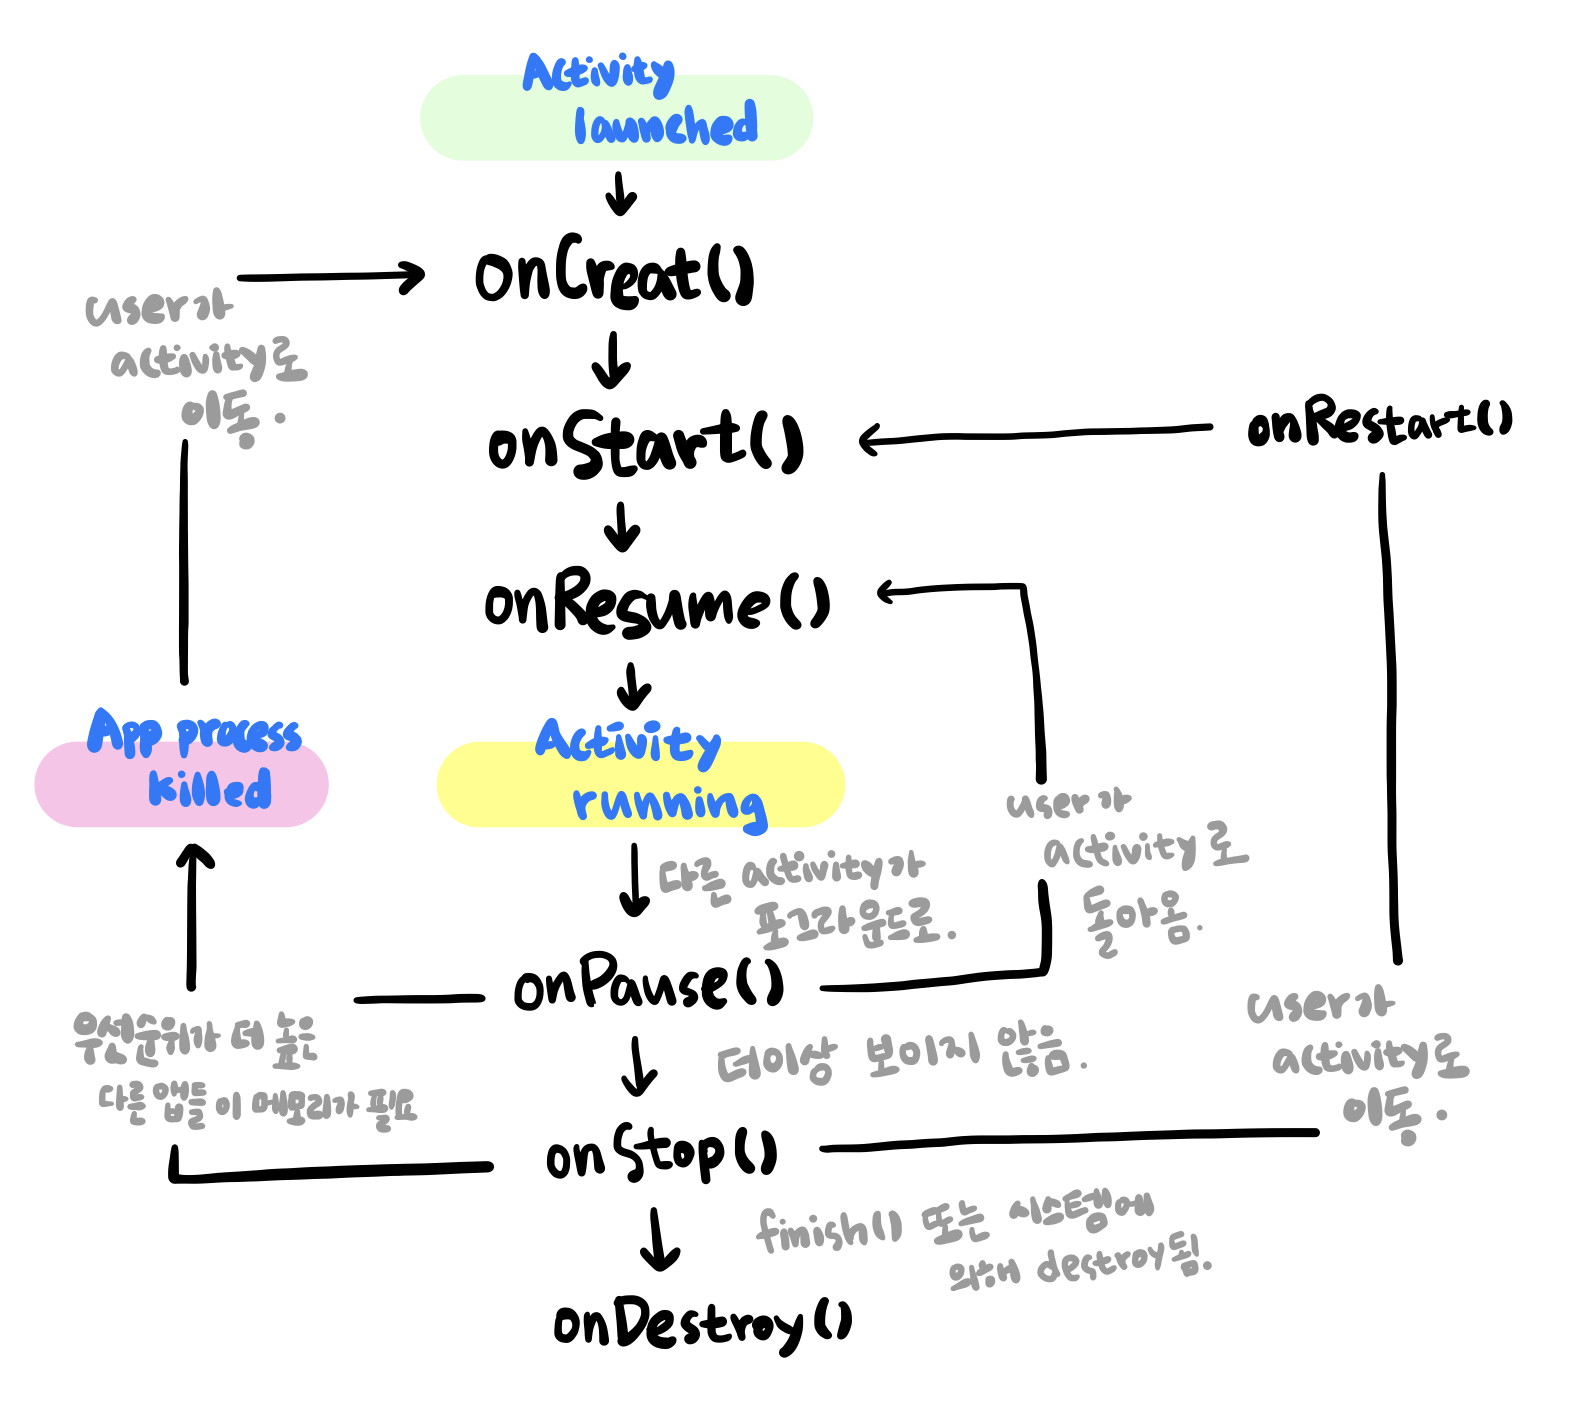 Activity
launched
onCreat()
user가
activity로
이동.
onStart()
onRestart()
onResume()
App process
killed
Activity
running
user가
activity로
돌아옴.
다른 activity가
포그라운드로.
onPause()
user가
activity로
이동.
우선순위가 더 높은
다른 앱들이 메모리가 필요
더이상 보이지 않음.
onStop()
finish() 또는 시스템에
의해 destroy됨.
onDestroy()